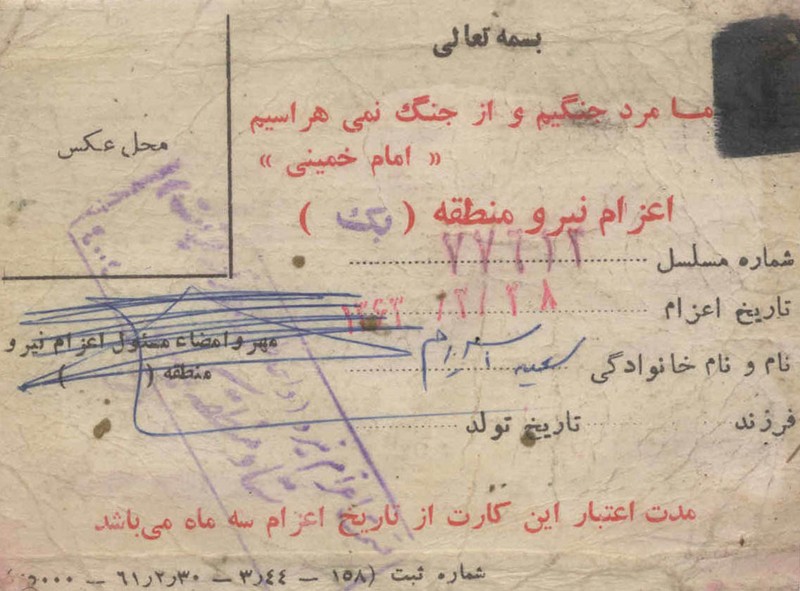 بسمه تعالی
ما مرد جنگیم و از جنگ نمی هراسیم
« امام خمینی »
محل عکس
اعزام نیرو منطقه ( یک )
شماره مسلسل
تاریخ اعزام ۱۳۶۳/۲/۲۸
مهر و امضاء مسئول اعزام نیرو
منطقه ( )
نام و نام خانوادگی سعید
فرزند تاریخ تولد
مدت اعتبار این کارت از تاریخ اعزام سه ماه می‌باشد
شماره ثبت (۱۵۸ – ۳٫۴۴ – ۶۱٫۲٫۳۰ –